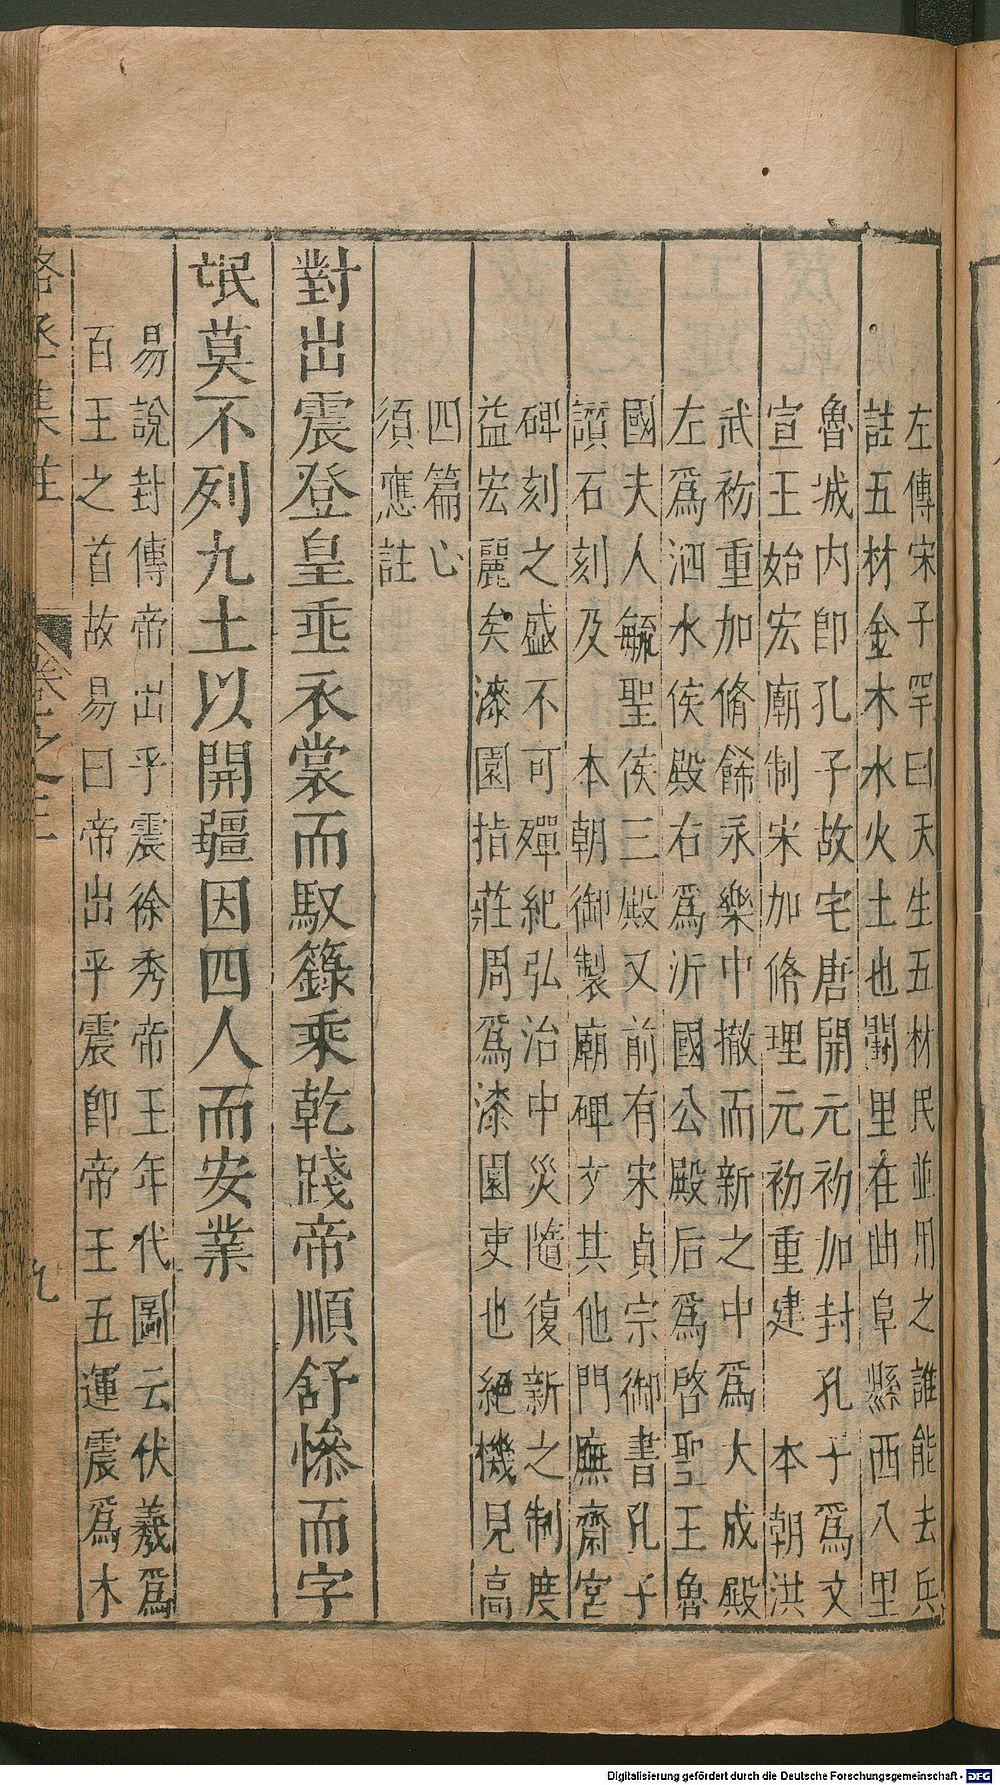 左傳宋子罕曰天生五材民並用之誰能去兵
註五材金木水火土也闕里在曲阜縣西八里
魯城内即孔子故宅唐開元初加封孔子爲文
宣王始宏廟制宋加脩理元初重建 本朝洪
武初重加脩餙永樂中撤而新之中爲大成殿
左爲泗水侯殿右爲沂國公殿后爲啓聖王魯
國夫人毓聖侯三殿又前有宋貞宗御書孔子
讃石刻及 本朝御製廟碑文其他門廡齋宫
碑刻之盛不可殫紀弘治中災隨復新之制度
益宏麗矣漆園指莊周爲漆園吏也絕機見高
四篇心
須應註
對出震登皇垂衣裳而馭籙乘乾踐帝順舒慘而字
氓莫不列九土以開疆因四人而安業
易說封傳帝出乎震徐秀帝王年代圖云伏羲爲
百王之首故易曰帝出乎震即帝王五運震爲木
駱丞集註 卷之三 九
Digitalisierung gefördert durch die Deutsche Forschungsgemeinschaft - DFG